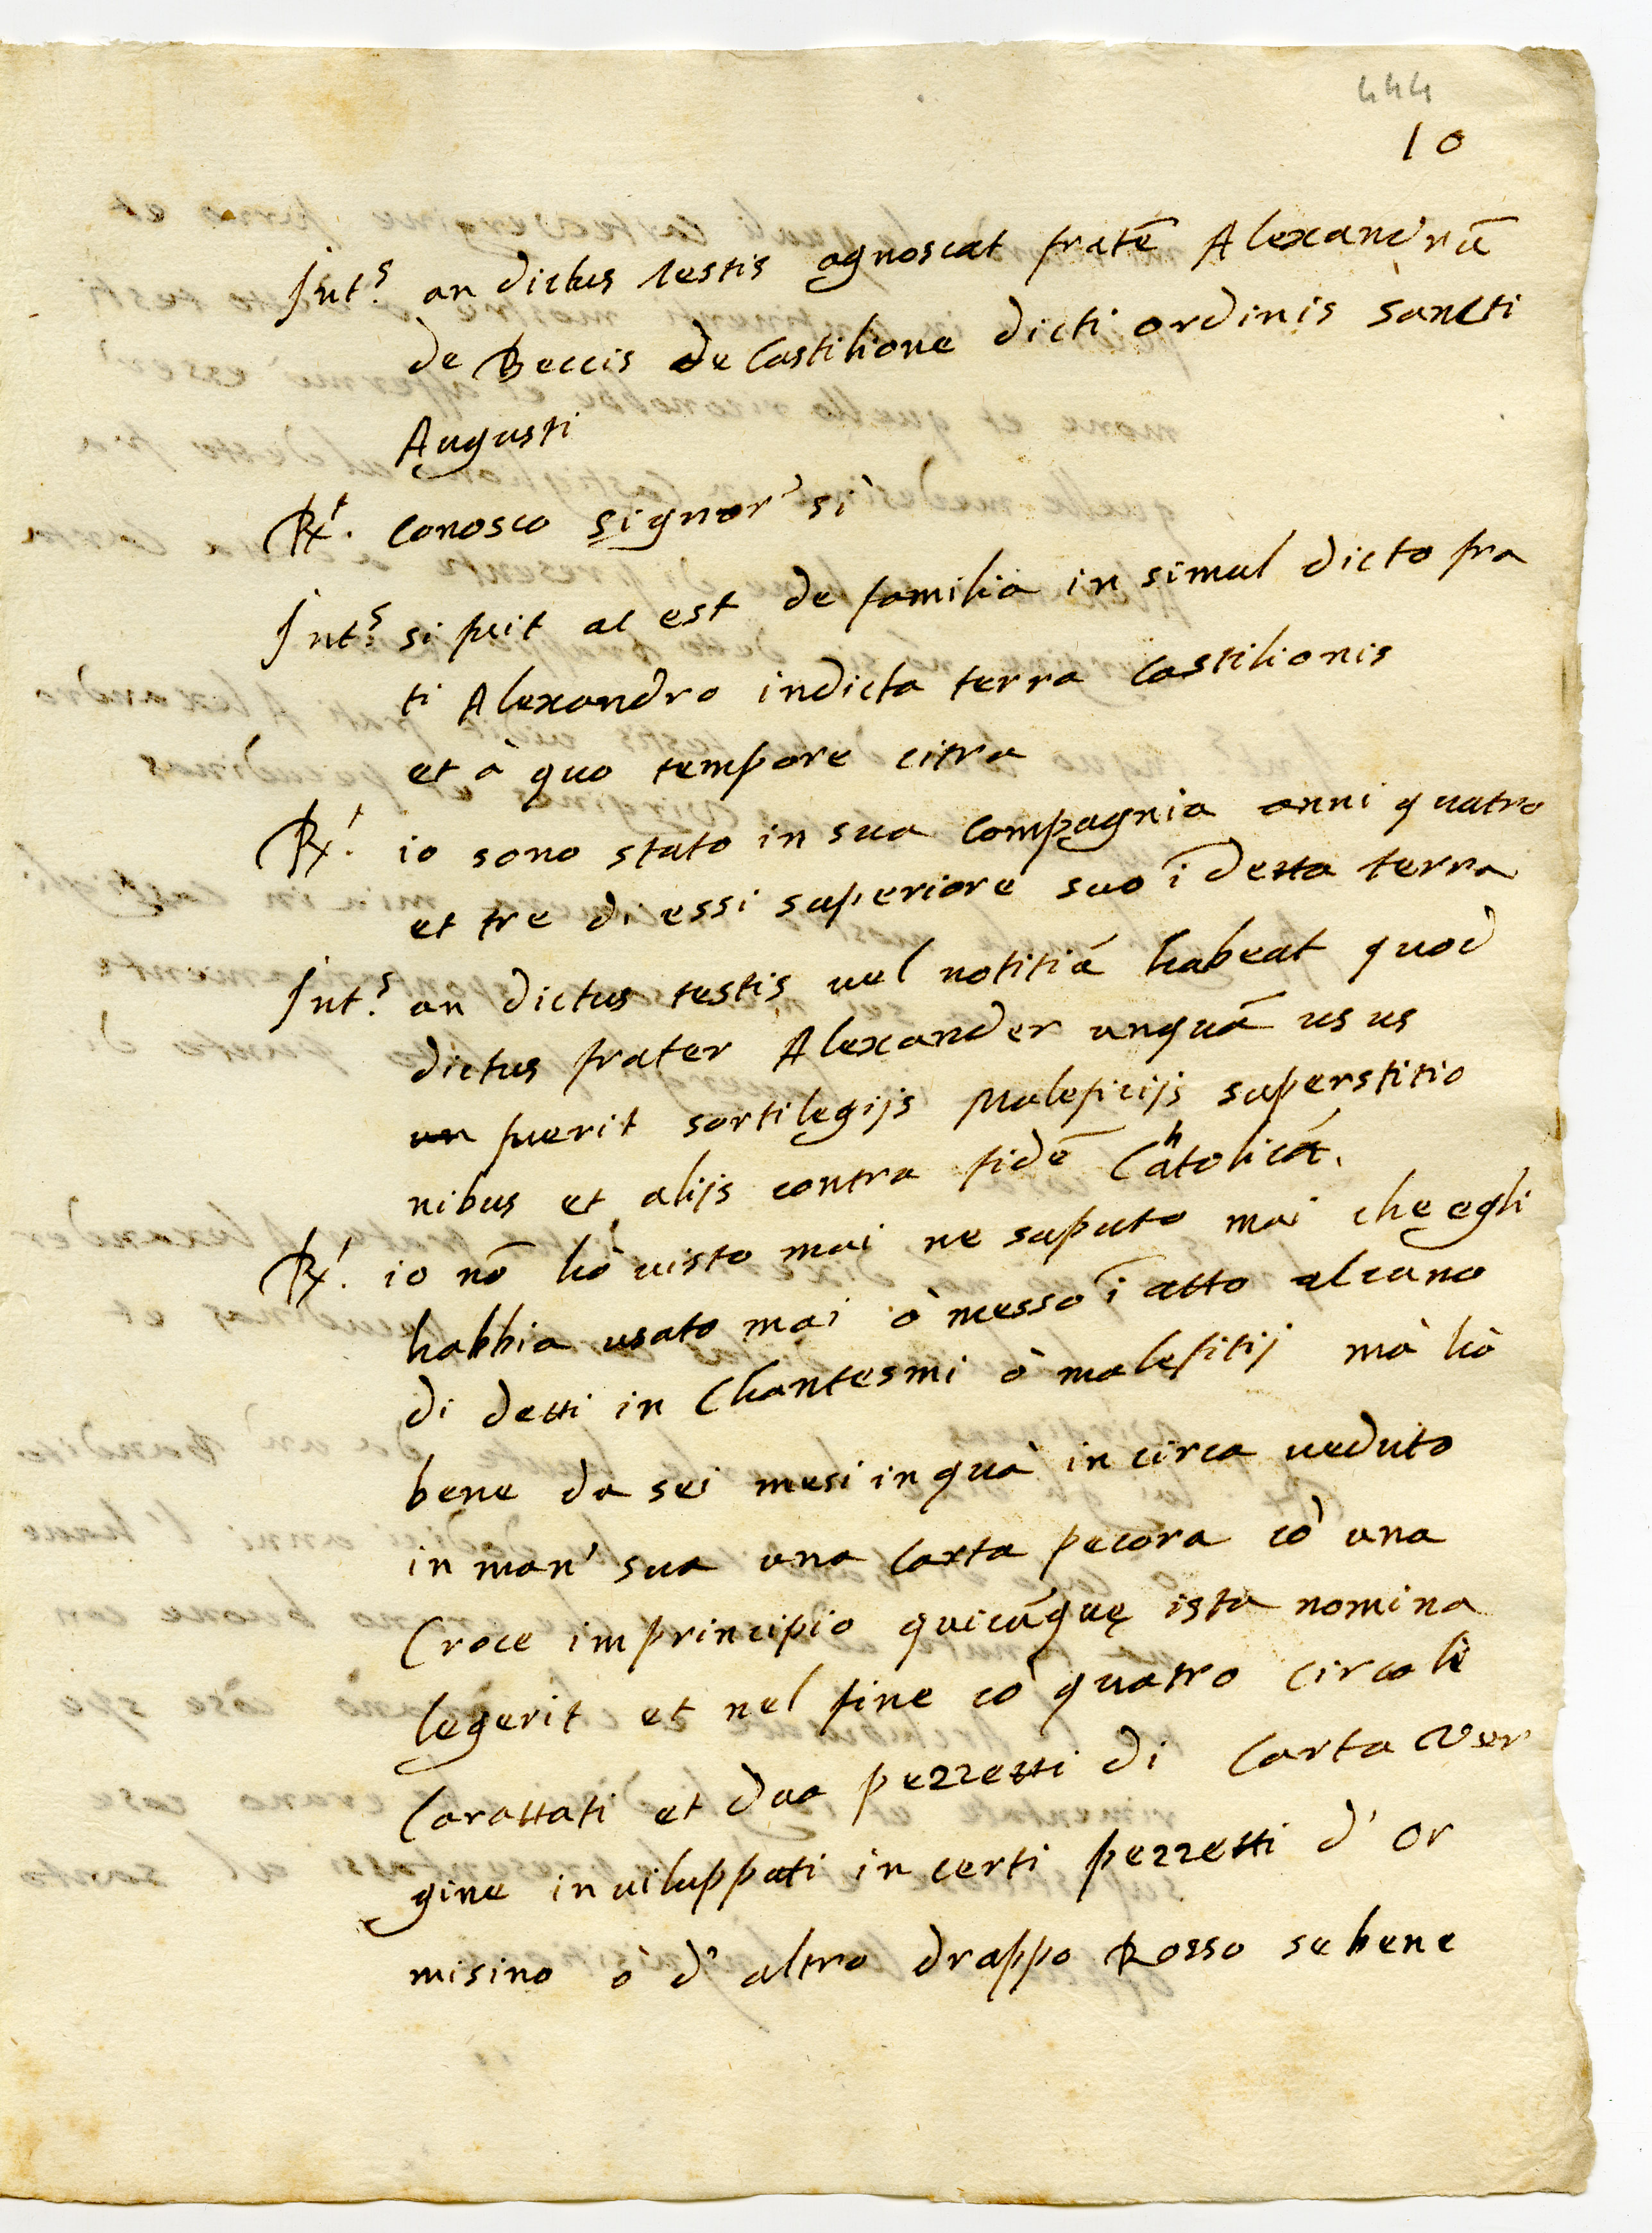 444
10
Int.s an dictus testis agnoscat fratē Alexandrū
de Beccis de Castilione dicti ordinis sancti
Augusti
Rx.t conosco signor' sì
Int.s si fuit ac est de familia in simul dicto fra
ti Alexandro indicta terra Castilionis
et à quo tempore citra
Rx.t io sono stato in sua compagnia anni quatro
et tre di essi superiore suo ī detta terra
Int.s an dictus testis vel notitiā habeat quod
dictus frater Alexander unquā usus
fuerit sortilegijs Maleficijs superstitio
nibus et alijs contra fidē Catholicā.
Rx.t io nō hò visto mai ne saputo mai che egli
habbia usato mai ò messo ī atto alcuno
di detti in Chantesmi ò malefitij mà hò
bene da sei mesi in quà in circa veduto
in man' sua una Carta pecora cō una
Croce im principio quicūque ista nomina
legerit et nel fine cō quatro circoli
Carattati et dua pezzetti di Carta Ver
gine inviluppati in certi pezzetti d' Or
misino ò d' altro drappo Rosso sebene